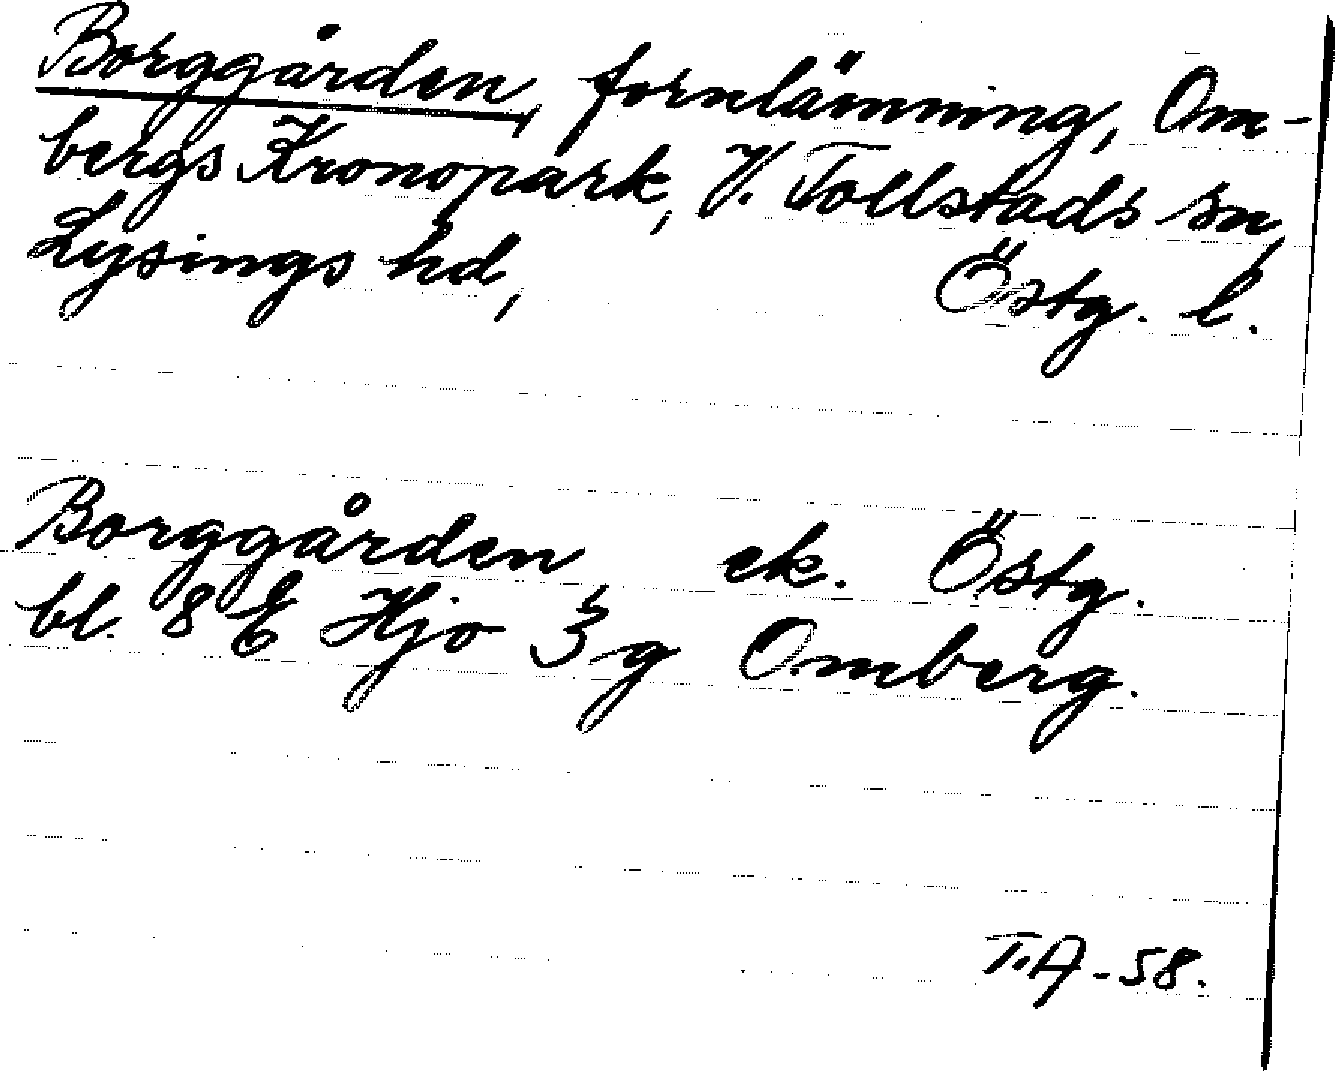 Borggården, fornlämning, Om-
bergs Kronopark, V. Tollstads sn,
Lysings hd, Östg. l.
Borggården, ek. Östg.
bl. 8 E Hjo 3 g Omberg.
T.A-58.